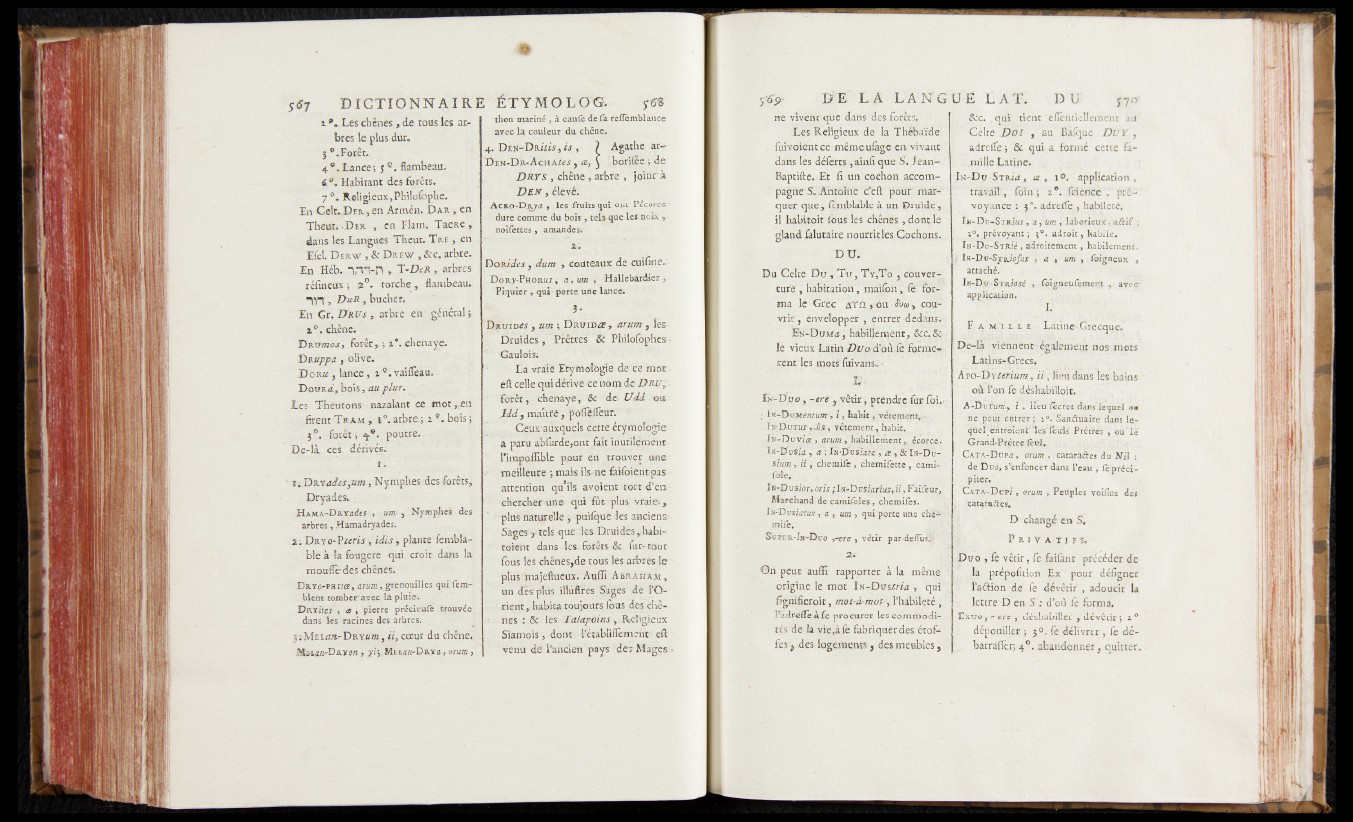 567 DICTIONNAIRE ÉTYMOLOG. 568
2°. Les chênes, de tous les ar-
bres le plus dur.
3°. Forêt.
4°. Lance; 5°. flambeau.
6°. Habitant des forêts.
7°. Religieux, Philosophe.
En Celt. DER, en Armén. DAR, en
Theut. DER, en Flam. TAERE,
dans les Langues Theut. TRE, en
Escl. DERW, & DREW, &c. arbre.
En Héb. תרהר, T-DeR, arbres
résineux; 2°. torche, flambeau.
דור, DuR, bucher.
En Gr. DRUs, arbre en général;
2°. chêne.
DRUmos, forêt,; 2°. chenaye.
DRuppa, olive.
DORu, lance, 2°. vaisseau.
DOURa, bois, au plur.
Les Theutons nazalant ce mot, en
firent TRAM, 1°. arbre; 2°. bois;
3°. forêt; 4°. poutre.
De-là ces dérivés.
1.
1. DRYades, um, Nymphes des forêts,
Dryades.
HAMA-DRYades, um, Nymphes des
arbres, Hamadryades.
2. DRYO-Pteris, idis, plante sembla-
ble à la fougere qui croît dans la
mousse des chênes.
DRYO-PHITæ, arum, grenouilles qui sem-
blent tomber avec la pluie.
DRYites, æ, pierre précieuse trouvée
dans les racines des arbres.
3. MELan-DRYum, ii, cœur du chêne.
MELan-DRYon, yi; MELan-DRYa, orum,
thon mariné, à cause de sa ressemblance
avec la couleur du chêne.
4. DEN-DRitis, is, } Agathe ar-
DEN-DR-ACHATES, æ, } borisée; de
DRYS, chêne, arbre, joint à
DEN, élevé.
ACRO-DRya, les fruits qui ont l'écorce
dure comme du bois, tels que les noix,
noisettes, amandes.
2.
DORides, dum, couteaux de cuisine.
DORY-PHORus, a, um, Hallebardier,
Piquier, qui porte une lance.
3.
DRUIDes, um; DRUIDæ, arum, les
Druides, Prêtres & Philosophes
Gaulois.
La vraie Etymologie de ce mot
est celle qui dérive ce nom de DRU,
forêt, chenaye, & de Udd ou
Idd, maître, possesseur.
Ceux auxquels cette étymologie
a paru absurde, ont fait inutilement
l'impossible pour en trouver une
meilleure; mais ils ne faisoient pas
attention qu'ils avoient tort d'en
chercher une qui fût plus vraie,
plus naturelle, puisque les anciens
Sages, tels que les Druides, habi-
toient dans les forêts & sur-tout
sous les chênes, de tous les arbres le
plus majestueux. Aussi ABRAHAM,
un des plus illustres Sages de l'O-
rient, habita toujours sous des chê-
nes: & les Talapoins, Religieux
Siamois, dont l'établissement est
venu de l'ancien pays des Mages
569 DE LA LANGUE LAT. DU 570
ne vivent que dans des forêts.
Les Religieux de la Thébaïde
suivoient ce même usage en vivant
dans les déserts, ainsi que S. Jean-
Baptiste. Et si un cochon accom-
pagne S. Antoine c'est pour mar-
quer que, semblable à un Druide,
il habitoit sous les chênes, dont le
gland salutaire nourrit les Cochons.
DU.
Du Celte DU, TU, TY, TO, couver-
ture, habitation, maison, se for-
ma le Grec ΔΥΩ, ou δυω, cou-
vrir, envelopper, entrer dedans.
EN-DUMa, habillement, &c. &
le vieux Latin DUO d'où se forme-
rent les mots suivans.
I.
IN-DUO, -ere, vêtir, prendre sur soi.
IN-DUMentum, i, habit, vêtement.
IN-DUTUS, ûs, vêtement, habit.
IN-DUViæ, arum, habillement, écorce.
IN-DUSia, æ; IN-DUSiata, æ, & IN-DU-
sium, ii, chemise, chemisette, cami-
sole.
IN-DUSior, oris; IN-DUSiarius, ii, Faiseur,
Marchand de camisoles, chemises.
IN-DUSiatus, a, um, qui porte une che-
mise.
SUPER-IN-DUO, -ere, vêtir par-dessus.
2.
On peut aussi rapporter à la même
origine le mot IN-DUStria, qui
signifieroit, mot-à-mot, l'habileté,
l'adresse à se procurer les commodi-
tés de la vie, à se fabriquer des étof-
fes, des logements, des meubles,
&c. qui tient essentiellement au
Celte DOI, au Basque DUY,
adresse; & qui a formé cette fa-
mille Latine.
IN-DU-STRia, æ, 1°. application,
travail, soin; 2°. science, pré-
voyance: 3°. adresse, habileté.
IN-DU-STRius, a, um, laborieux, actif;
2°. prévoyant; 3°. adroit, habile.
IN-DU-STRiè, adroitement, habilement.
IN-DU-STRiosus, a, um, soigneux,
attaché.
IN-DU-STRiosè, soigneusement, avec
application.
I.
FAMILLE Latine-Grecque.
De-là viennent également nos mots
Latins-Grecs.
APO-DYterium, ii, lieu dans les bains
où l'on se déshabilloit.
A-DUTum, i, lieu secret dans lequel on
ne peut entrer; 2°. Sanctuaire dans le-
quel entroient les seuls Prêtres, ou le
Grand-Prêtre seul.
CATA-DUPa, orum, cataractes du Nil:
de DUO, s'enfoncer dans l'eau, se préci-
piter.
CATA-DUPi, orum, Peuples voisins des
cataractes.
D changé en S.
PRIVATIFS.
DUO, se vêtir, se faisant précéder de
la préposition Ex pour désigner
l'action de se dévêtir, adoucit la
lettre D en S: d'où se forma.
EXUO, -ere, déshabiller, dévêtir; 2°
dépouiller; 3°. se délivrer, se dé-
barrasser; 4°. abandonner, quitter.